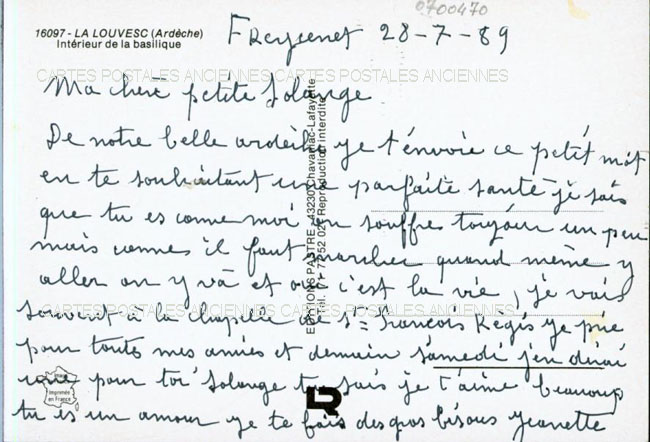 0700470
16097 - LA LOUVESC (Ardèche)
Intérieur de la basilique
Freyssenet 28-7-89
CARTES POSTALES ANCIENNES CARTES POSTALES ANCIENNES
Ma chère petite Solange
De notre belle ardèche je t'envoie ce petit mot
en te souhaitant une parfaite santé je sais
que tu es comme moi on souffre toujour un peu
mais comme il faut marcher quand même y
aller on y va et oui c'est la vie, je vais
CARTES POSTALES ANCIENNES CARTES POSTALES ANCIENNES
souvent à la chapelle de St François Régis je prie
pour toutes mes amies et demain samedi j'en dirai
une pour toi Solange tu sais je t'aime beaucoup
tu es un amour je te fais des gros bisous jeanette
EDITIONS PASTRE - 43230 Chavaniac-Lafayette
Reproduction interdite
Imprimée
en France
LR